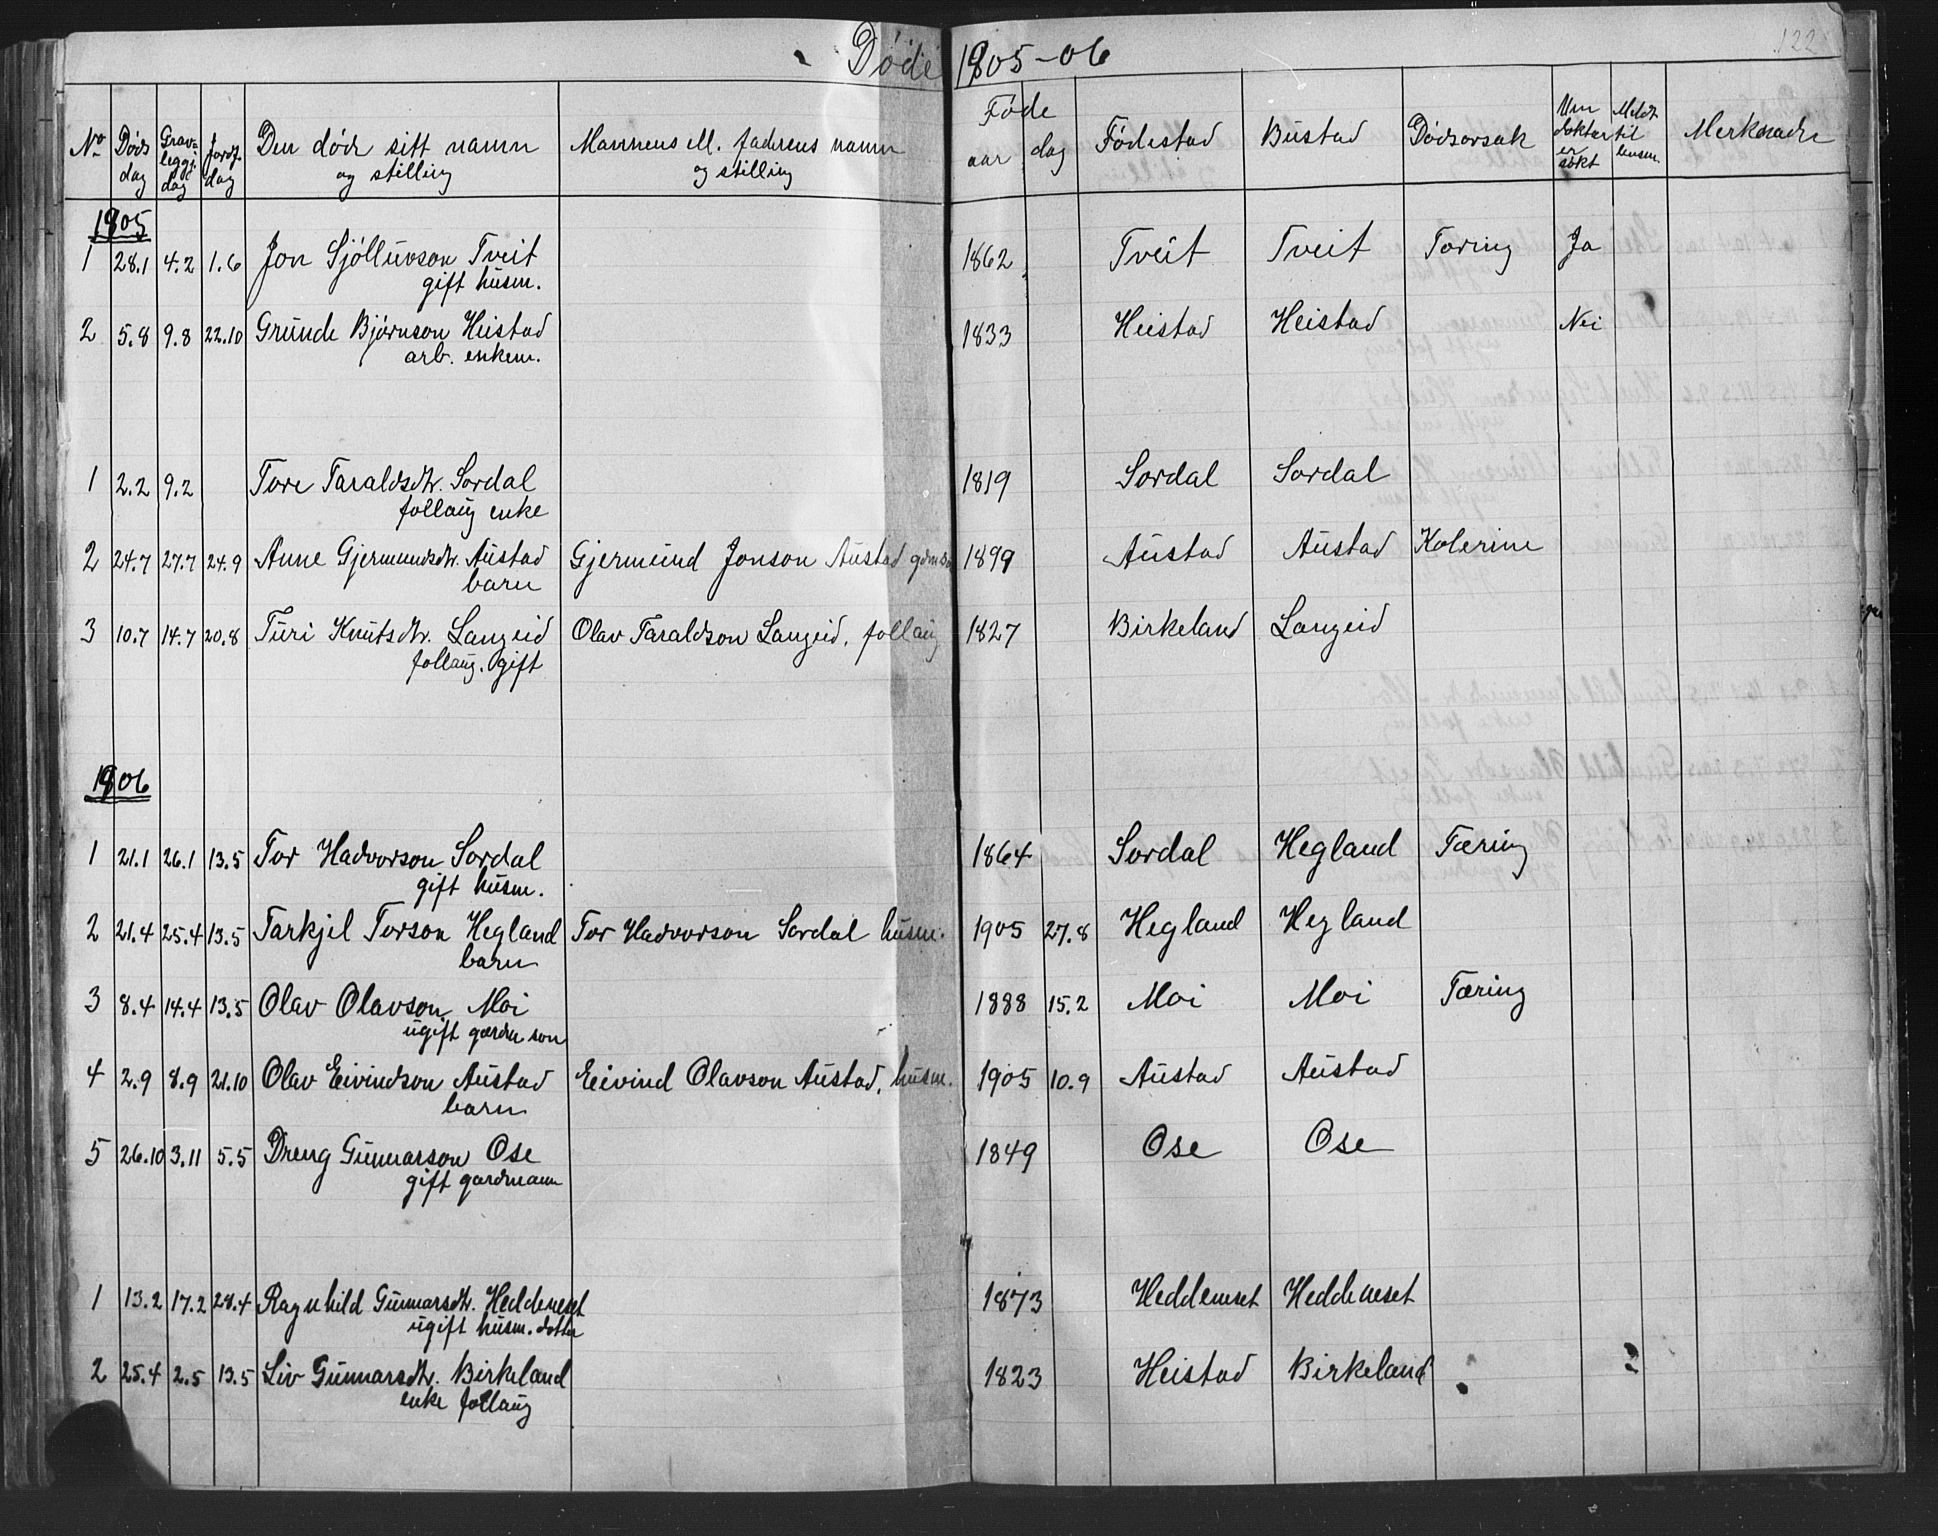 Døde 1905-06
122
No Døds dag Gravleggs dag Jordf. dag Den døde sitt namn og stilling Mannens ell. faderens namn og stilling Føde aar dag Fødestad Bustad Dødsorsak Um doktar er søkt Meldt til lensm. Merknader
1905
1 28.1 4.2 1.6 Jon Sjølluvson Tveit 1862 Tveit Tveit Tæring Ja
gift husm.
2 5.8 9.8 22.10 Grunde Bjørnson Heistad 1833 Heistad Heistad Nei
arb. enkem.
1 2.2 9.2 Tore Taraldsdtr. Sordal 1819 Sordal Sordal
follaug enke
2 24.7 27.7 24.9 Anne Gjermundsdtr. Austad Gjermund Jonson Austad 1899 Austad Austad Kolerine
barn
3 10.7 14.7 20.8 Turi Knutsdtr. Langeid Olav Taraldson Langeid, follaug 1827 Birkeland Langeid
follaug. gift
1906
1 21.1 26.1 13.5 Tor Hadvorson Sordal 1864 Sordal Hegland Tæring
gift husm.
2 21.4 25.4 13.5 Tarkjel Torson Hegland Tor Hadvorson Sordal husm. 1905 27.8 Hegland Hegland
barn
3 8.4 14.4 13.5 Olav Olavson Moi 1888 15.2 Moi Moi Tæring
ugift gardm son
4 2.9 8.9 21.10 Olav Eivindson Austad Eivind Olavson Austad, husm. 1905 10.9 Austad Austad
barn
5 26.10 3.11 5.5 Dreng Gunnarson Ose 1849 Ose Ose
gift gardmann
1 13.2 17.2 28.4 Ragnhild Gunnarsdtr. Heddeneset 1873 Heddeneset Heddeneset
ugift husm. dotter
2 25.4 2.5 13.5 Liv Gunnarsdtr. Birkeland 1823 Heistad Birkeland
enke follaug